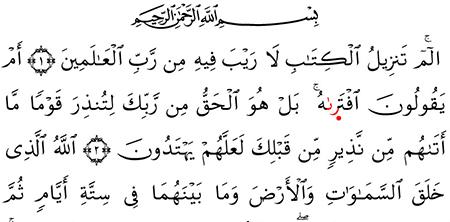 بِسْمِ ٱللَّهِ ٱلرَّحْمَٰنِ ٱلرَّحِيمِ
الٓمٓ ۚ تَنزِيلُ ٱلْكِتَٰبِ لَا رَيْبَ فِيهِ مِن رَّبِّ ٱلْعَٰلَمِينَ ۝١ أَمْ
يَقُولُونَ ٱفْتَرىٰهُ ۚ بَلْ هُوَ ٱلْحَقُّ مِن رَّبِّكَ لِتُنذِرَ قَوْمًا مَّا
أَتَىٰهُم مِّن نَّذِيرٍ مِّن قَبْلِكَ لَعَلَّهُمْ يَهْتَدُونَ ۝٢ ٱللَّهُ ٱلَّذِى
خَلَقَ ٱلسَّمَٰوَٰتِ وَٱلْأَرْضَ وَمَا بَيْنَهُمَا فِى سِتَّةِ أَيَّامٍ ثُمَّ